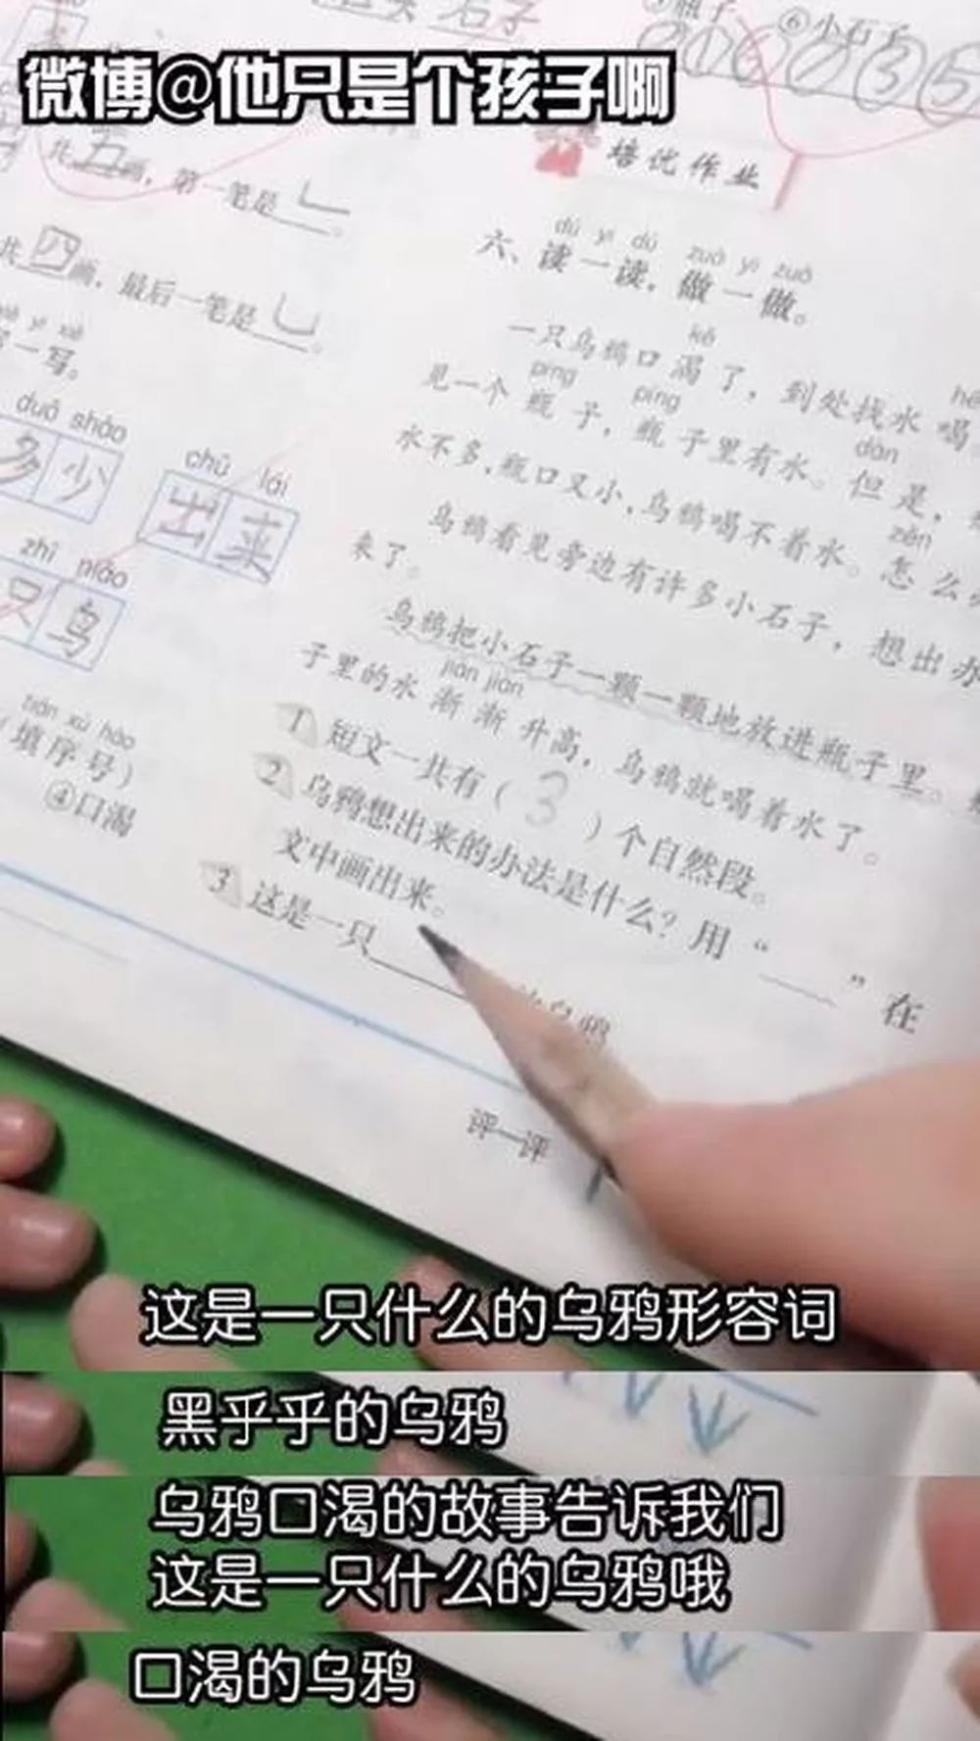 微博@他只是个孩子啊
石子
⑥小石子
共五画，第一笔是
共四画，最后一笔是
写一写。
duō shǎo
多少
chū lái
出来
zhī niǎo
只鸟
tián xù hào
填序号）
④口渴
培优作业
dú yì dú zuò yì zuò
六、读一读，做一做。
kě
一只乌鸦口渴了，到处找水喝
píng píng
见一个瓶子，瓶子里有水。但是，
dàn
水不多，瓶口又小，乌鸦喝不着水。怎么
zěn
乌鸦看见旁边有许多小石子，想出办
来了。
乌鸦把小石子一颗一颗地放进瓶子里。
jiàn jiàn
子里的水渐渐升高，乌鸦就喝着水了。
1 短文一共有（3）个自然段。
2 乌鸦想出来的办法是什么？用“____”在
文中画出来。
3 这是一只
评一评
这是一只什么的乌鸦形容词
黑乎乎的乌鸦
乌鸦口渴的故事告诉我们
这是一只什么的乌鸦哦
口渴的乌鸦